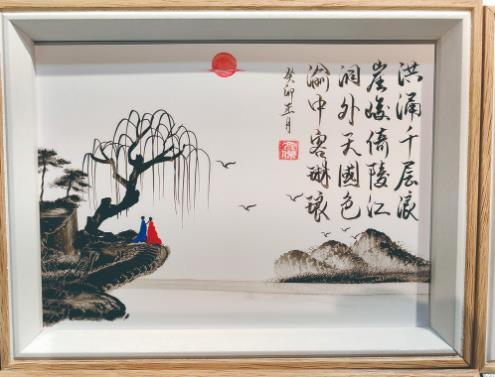 洪涌千层浪
崖峻倚陵江
洞外天國色
渝中客琳琅
癸卯正月